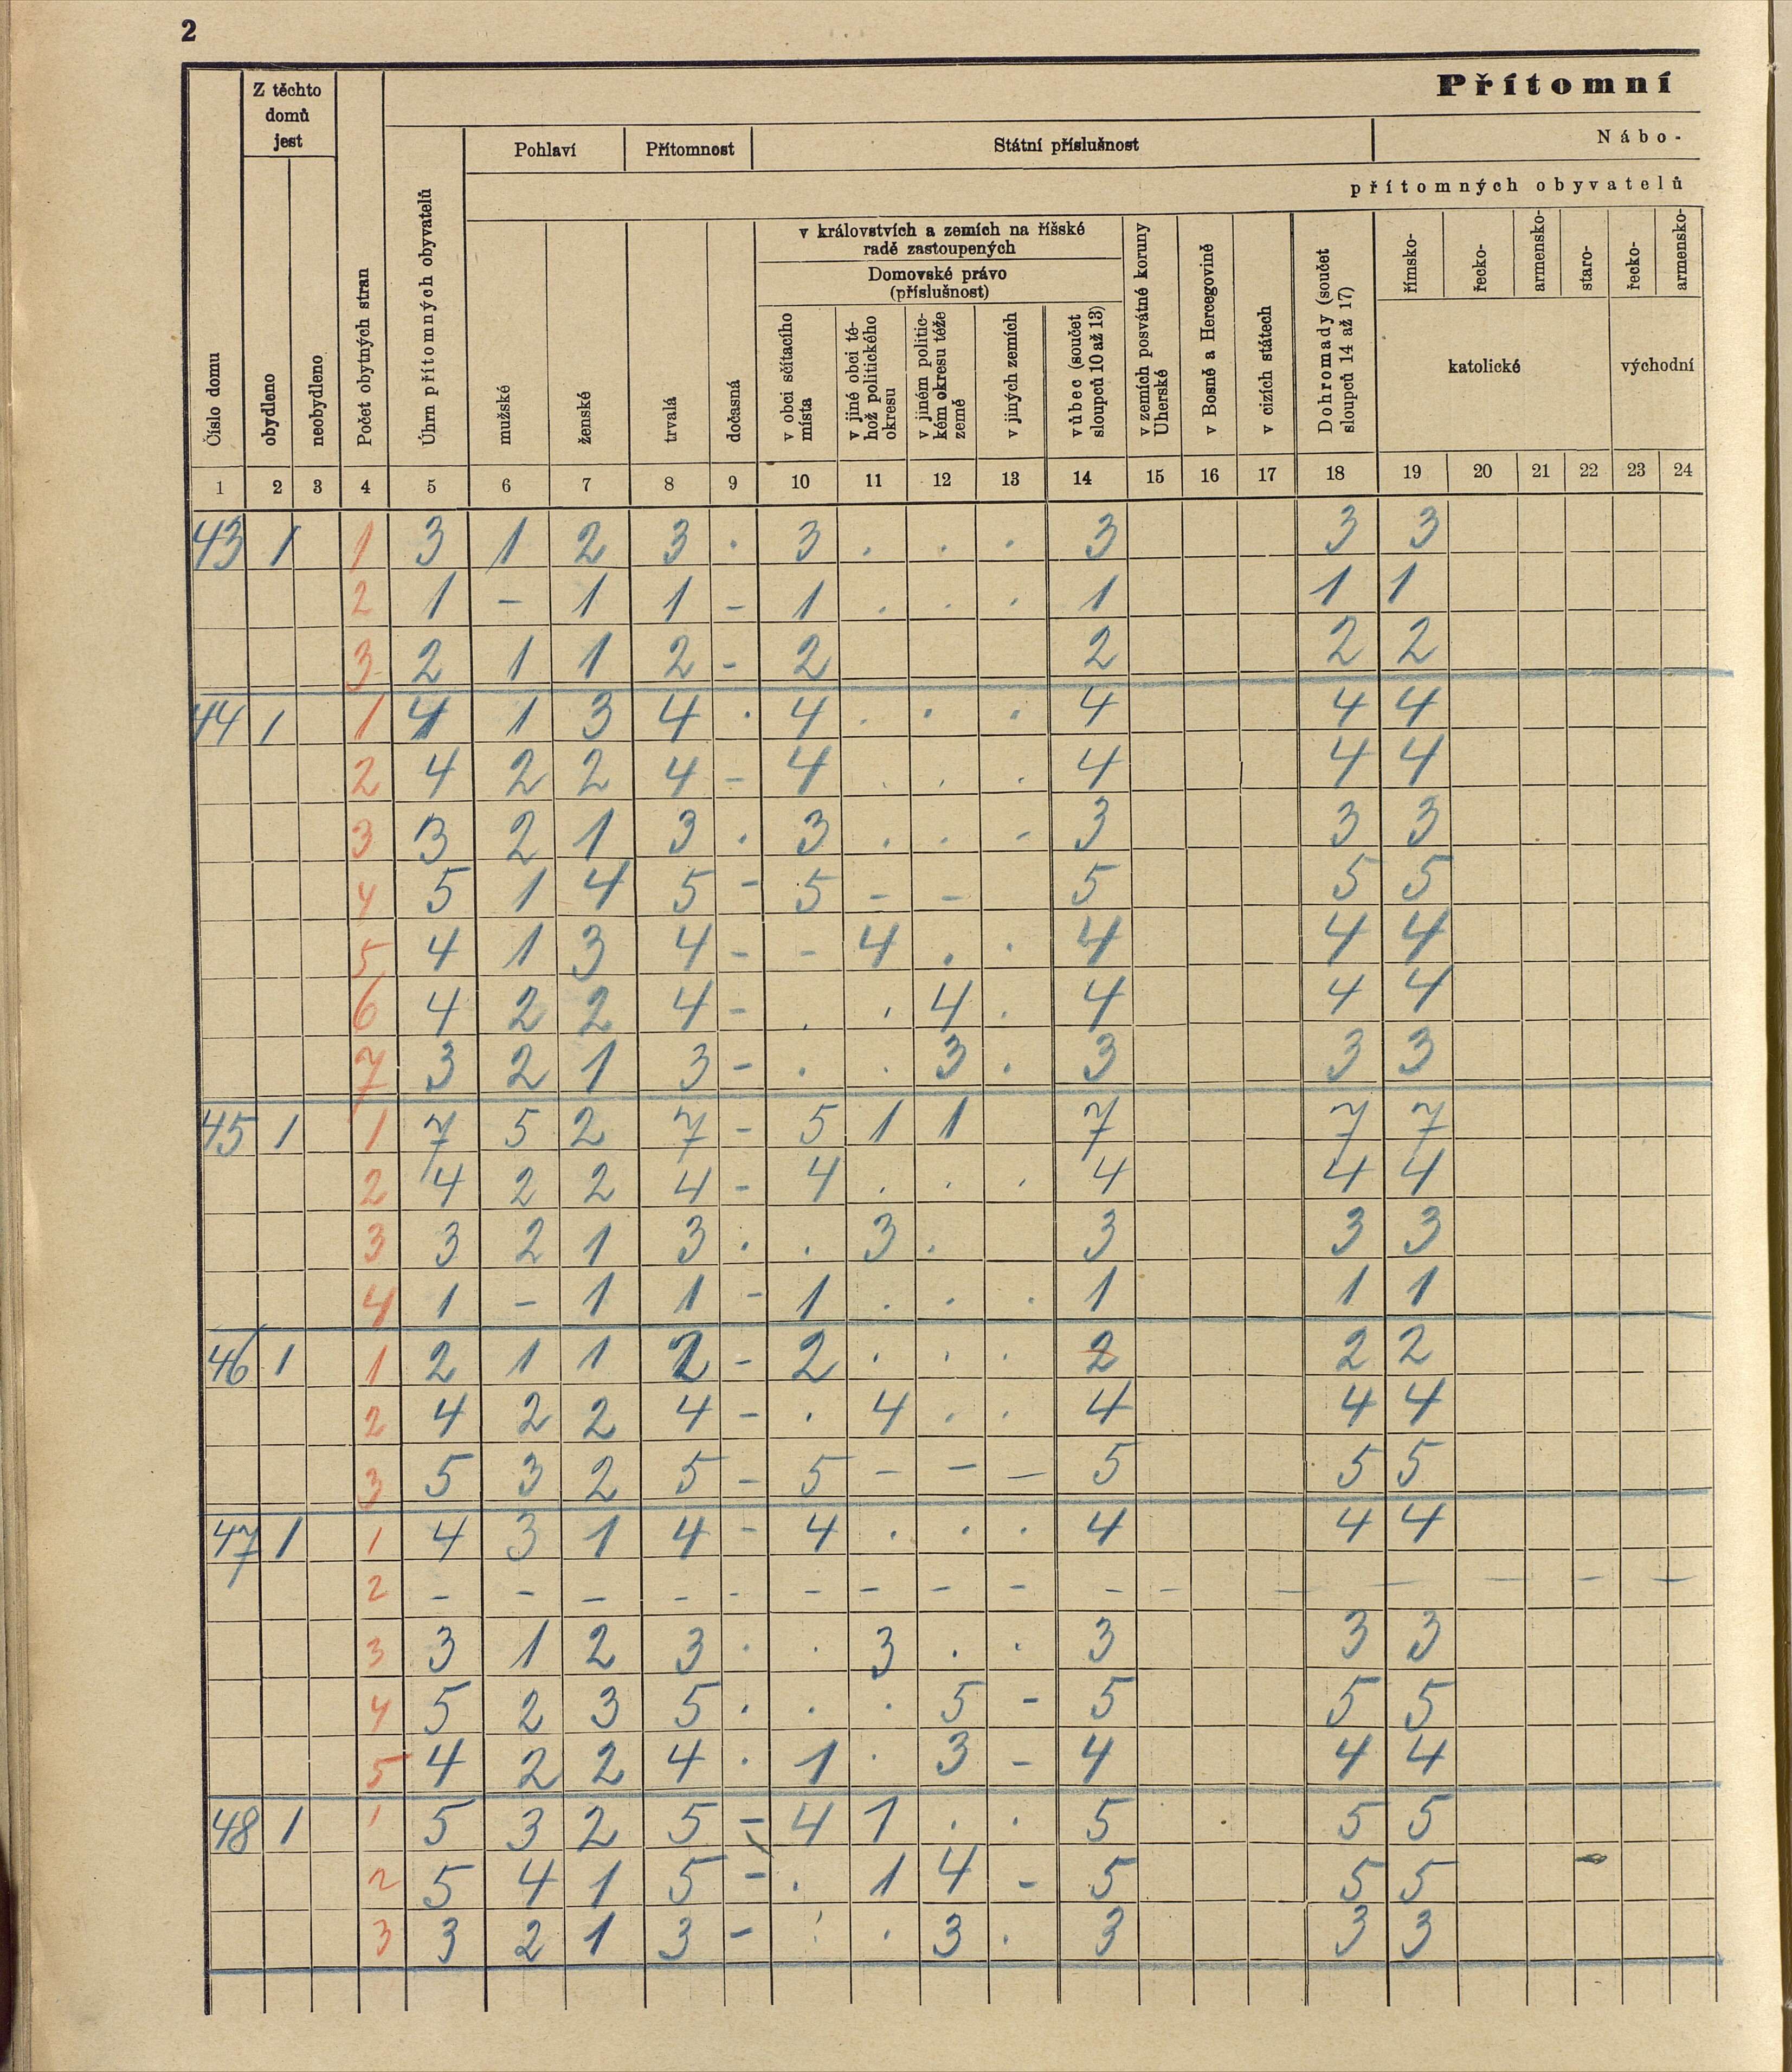 2
Přítomní
Z těchto domů jest
Pohlaví Přítomnost Státní příslušnost Nábo-
přítomných obyvatelů
v královstvích a zemích na říšské
radě zastoupených
Domovské právo
(příslušnost)
Číslo domu
obydleno
neobydleno
Počet obytných stran
Úhrn přítomných obyvatelů
mužské
ženské
trvalá
dočasná
v obci sčítacího místa
v jiné obci té-hož politického okresu
v jiném politic-kém okresu téže země
v jiných zemích
vůbec (součet sloupců 10 až 13)
v zemích posvátné koruny Uherské
v Bosně a Hercegovině
v cizích státech
Dohromady (součet sloupců 14 až 17)
římsko-
řecko-
armensko-
staro-
řecko-
armensko-
katolické východní
1 2 3 4 5 6 7 8 9 10 11 12 13 14 15 16 17 18 19 20 21 22 23 24
43 1 1 3 1 2 3 . 3 . . . 3 3 3
2 1 - 1 1 - 1 . . . 1 1 1
3 2 1 1 2 - 2 2 2 2
44 1 1 4 1 3 4 . 4 . . . 4 4 4
2 4 2 2 4 - 4 . . . 4 4 4
3 3 2 1 3 . 3 . . - 3 3 3
4 5 1 4 5 - 5 - - 5 5 5
5 4 1 3 4 - - 4 . . 4 4 4
6 4 2 2 4 - . . 4 . 4 4 4
7 3 2 1 3 - . . 3 . 3 3 3
45 1 1 7 5 2 7 - 5 1 1 7 7 7
2 4 2 2 4 - 4 . . . 4 4 4
3 3 2 1 3 . . 3 . 3 3 3
4 1 - 1 1 - 1 . . . 1 1 1
46 1 1 2 1 1 2 - 2 . . . 2 2 2
2 4 2 2 4 - . 4 . . 4 4 4
3 5 3 2 5 - 5 - - - 5 5 5
47 1 1 4 3 1 4 - 4 . . . 4 4 4
2 - - - - - - - - - - - - - - - -
3 3 1 2 3 . . 3 . . 3 3 3
4 5 2 3 5 . . . 5 - 5 5 5
5 4 2 2 4 . 1 . 3 - 4 4 4
48 1 1 5 3 2 5 - 4 1 . . 5 5 5
2 5 4 1 5 - . 1 4 - 5 5 5
3 3 2 1 3 - . . 3 . 3 3 3